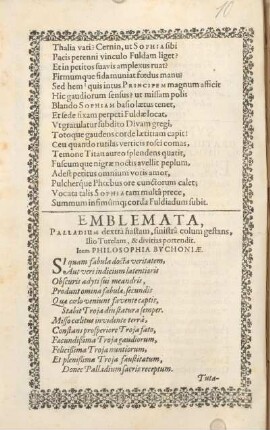 10
Thalia vati? Cernin, ut SOPHIA sibi
Pacis perenni vinculo Fuldam liget?
Et in petitos suavis amplexus ruat?
Firmumque fida muniat fœdus manu?
Sed hem! quis intus PRINCIPEM magnum afficit
Hic gaudiorum sensus? ut missam polis
Blando SOPHIAM basio lætus tenet,
Et se de fixam perpeti Fuldæ locat,
Ut gratulatur subdito Divam gregi,
Totoque gaudens corde lætitiam capit:
Ceu quando rutilis verticis rosei comas,
Temone Titan aureo splendens quatit,
Fuscumque nigræ noctis evellit peplum,
Adest petitus omnium votis amor,
Pulcherque Phœbus ore cunctorum calet;
Vocata talis SOPHIA tam multâ prece,
Summum infimúmq; corda Fuldiadum subit.
EMBLEMATA,
PALLADIUM dextrâ hastam, sinistrâ colum gestans,
Ilio Tutelam, & divitias portendit.
Item PHILOSOPHIA BUCHONIÆ.
SI quam fabula docta veritatem,
Aut veri indicium latentis
Obscuris adytis sui meandris,
Produnt omina fabulæ secundis
Quæ cœlo veniunt favente captis,
Stabit Troja din statura semper.
Missa cælitus invidente terrâ,
Constans prosperiore Troja fato,
Facundissima Troja gaudiorum,
Felicissima Troja nuntiorum,
Et plenissima Troja faustitatum,
Donec Palladium sacris receptum.
Tuta-